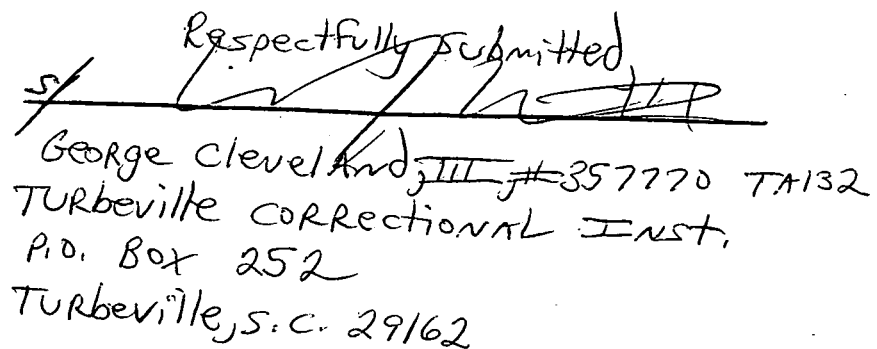 Respectfully submitted,
S/
George Cleveland, III, #357770 TA132
Turbeville Correctional Inst.
P.O. Box 252
Turbeville, S.C. 29162